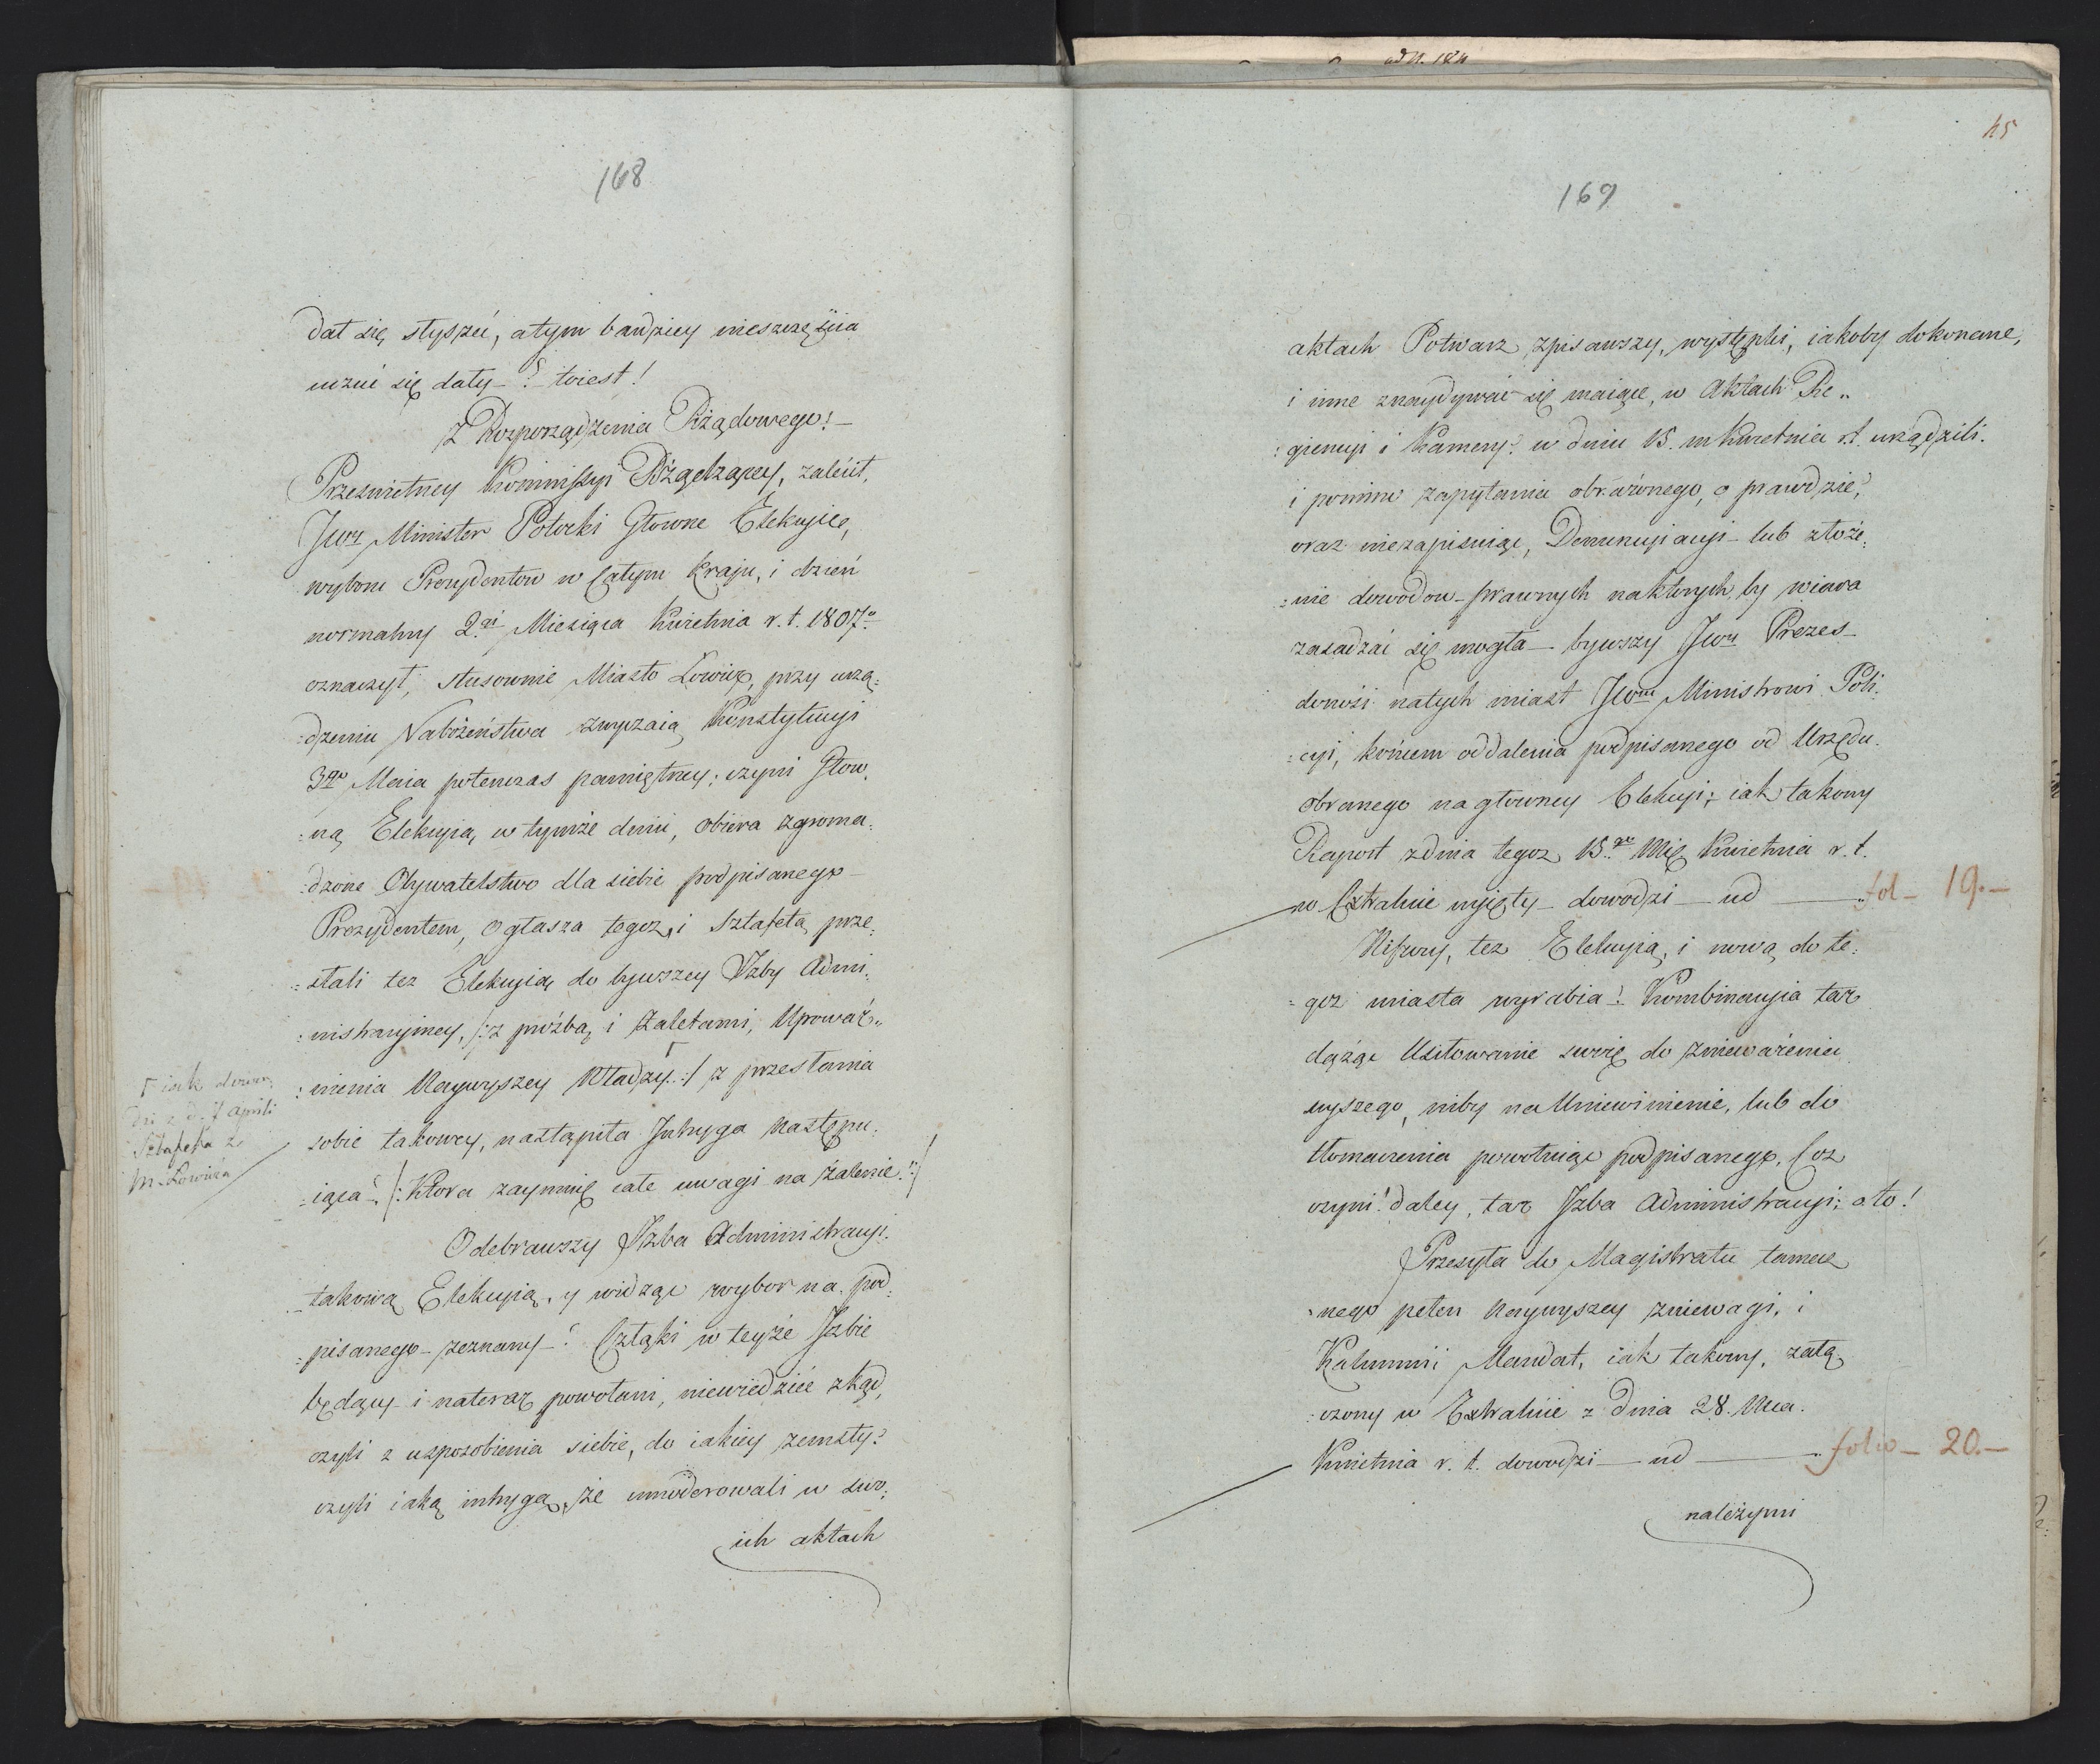 168
dał się słyszeć, a tym bardziey nieszczęścia
uczuć się dały – ! – toiest!
Z Rozporządzenia Rządowego! –
Prześwietney Kommissyi Rządzącey, zalecił,
JWz Minister Potocki Głowne Elekcyie,
wyboru Prezydentow w całym Kraju, i dzień
normalny 2gi Miesiąca Kwietnia r. t. 1807o
oznaczył, stusownie Miasto Łowicz, przy urzą:
:dzeniu Nabożeństwa zwyczaią Konstytucyi
3go Maia potenczas pamiętney; czyni Głow:
:ną Elekcyią, w tymże dniu, obiera zgroma:
:dzone Obywatelstwo dla siebie podpisanego
Prezydentem, ogłasza tegoż, i Sztafetą prze:
:stali też Elekcyią do bywszey Izby Admi:
:nistracyiney, /: z proźbą i zaletami, Upoważ„
:nienia Naywyszey Władzy. :/ z przesłania
Γ iak dowo
dzi z d. 7 Aprili
Sztafeta z
M. Łowicza
sobie takowey, nastąpiła Intryga następu:
:iąca! /: Ktora zaymuię całe uwagi na żalenie! :/
Odebrawszy Izba Administracyi
takową Elekcyią, y widząc wybor na pod:
:pisanego – zeznany – ! Cztąki w teyże Izbie
będący – i nateraz powołani, niewiedzieć zkąd,
czyli z usposobienia siebie, do iakiey zemsty?
czyli iaką intrygą, że umoderowali w swo:
ich aktach
ad N. 184
45
169
aktach Potwarz zpisawszy, występki, iakoby dokonane,
i inne znaydywać się maiące, w Aktach Re„
:giencyi i Kamery? w dniu 15. m Kwietnia r.t. urządzili.
i pomimo zapytania obrażonego, o prawdzie,
oraz niezapisuiąc, Denuncyiacyi – lub złoże:
:nie dowodow – prawnych na ktorych by wiara
zasadzać się mogła – bywszy JWu Prezes –
donosi natych miast JWmu Ministrowi Poli:
:cyi, końcem oddalenia podpisanego od Urzędu
obranego na głowney Elekcyi; iak takowy
Raport z dnia tegoż 15.go Mię Kwietnia r. t.
w Extrakcie wyięty – dowodzi – ud – fol – 19. –
Niszczy, też Elekcyią, i nową do te:
:goz miasta wyrabia! Kombinacyia taż
dążąc Usiłowanie swoię do znieważenia
wyszego, niby na Uniewinienie, lub do
tłomaczenia powołuiąc podpisanego. Coz
czyni! daley, taż Izba Administracyi; oto!
Przesyła do Magistratu tamecz
:nego pełen Naywyszey zniewagi, i
Kalumnii Mandat, iak takowy, załą:
:czony w Extrakcie z Dnia 28. Mca.
Kwietnia r. t. dowodzi – ud – folio – 20. –
należymi